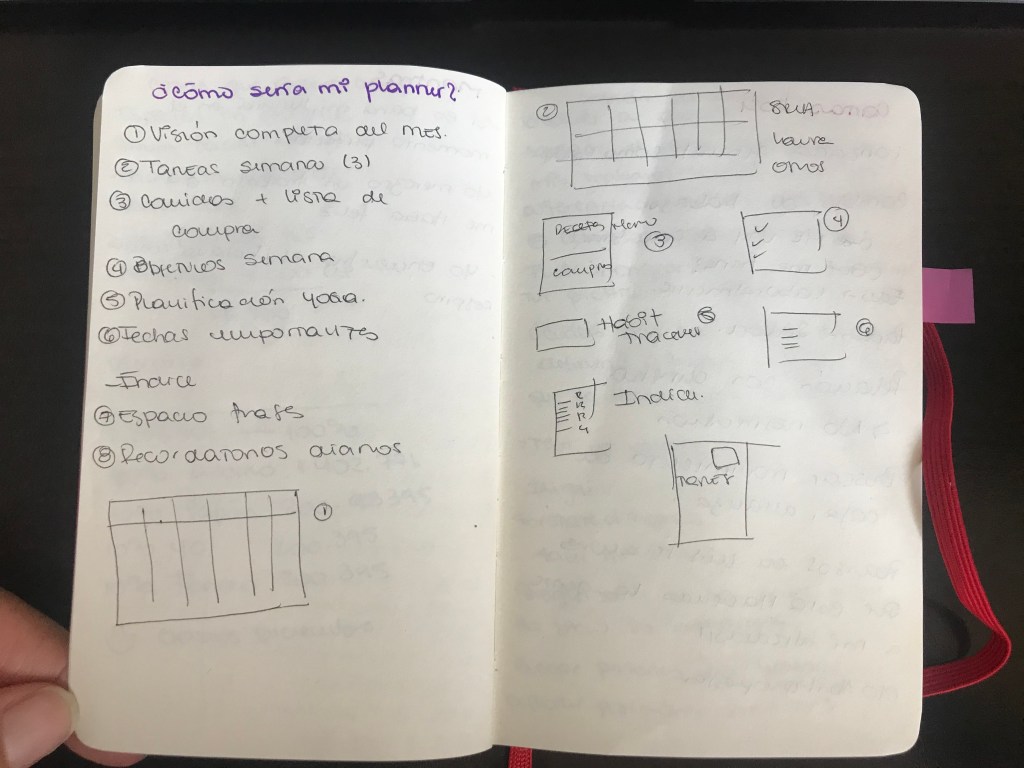 ¿Cómo sería mi planner?
① Visión completa del mes.
② Tareas semana (3)
③ comidas + lista de
compra
④ Objetivos semana
⑤ Planificación yoga.
⑥ Fechas importantes
– Índice
⑦ Espacio frases
⑧ Recordatorios diarios
①
②
Laura
otros
Recetas Menú
compra
③
④
Habit
Tracker
⑤
⑥
Indice.